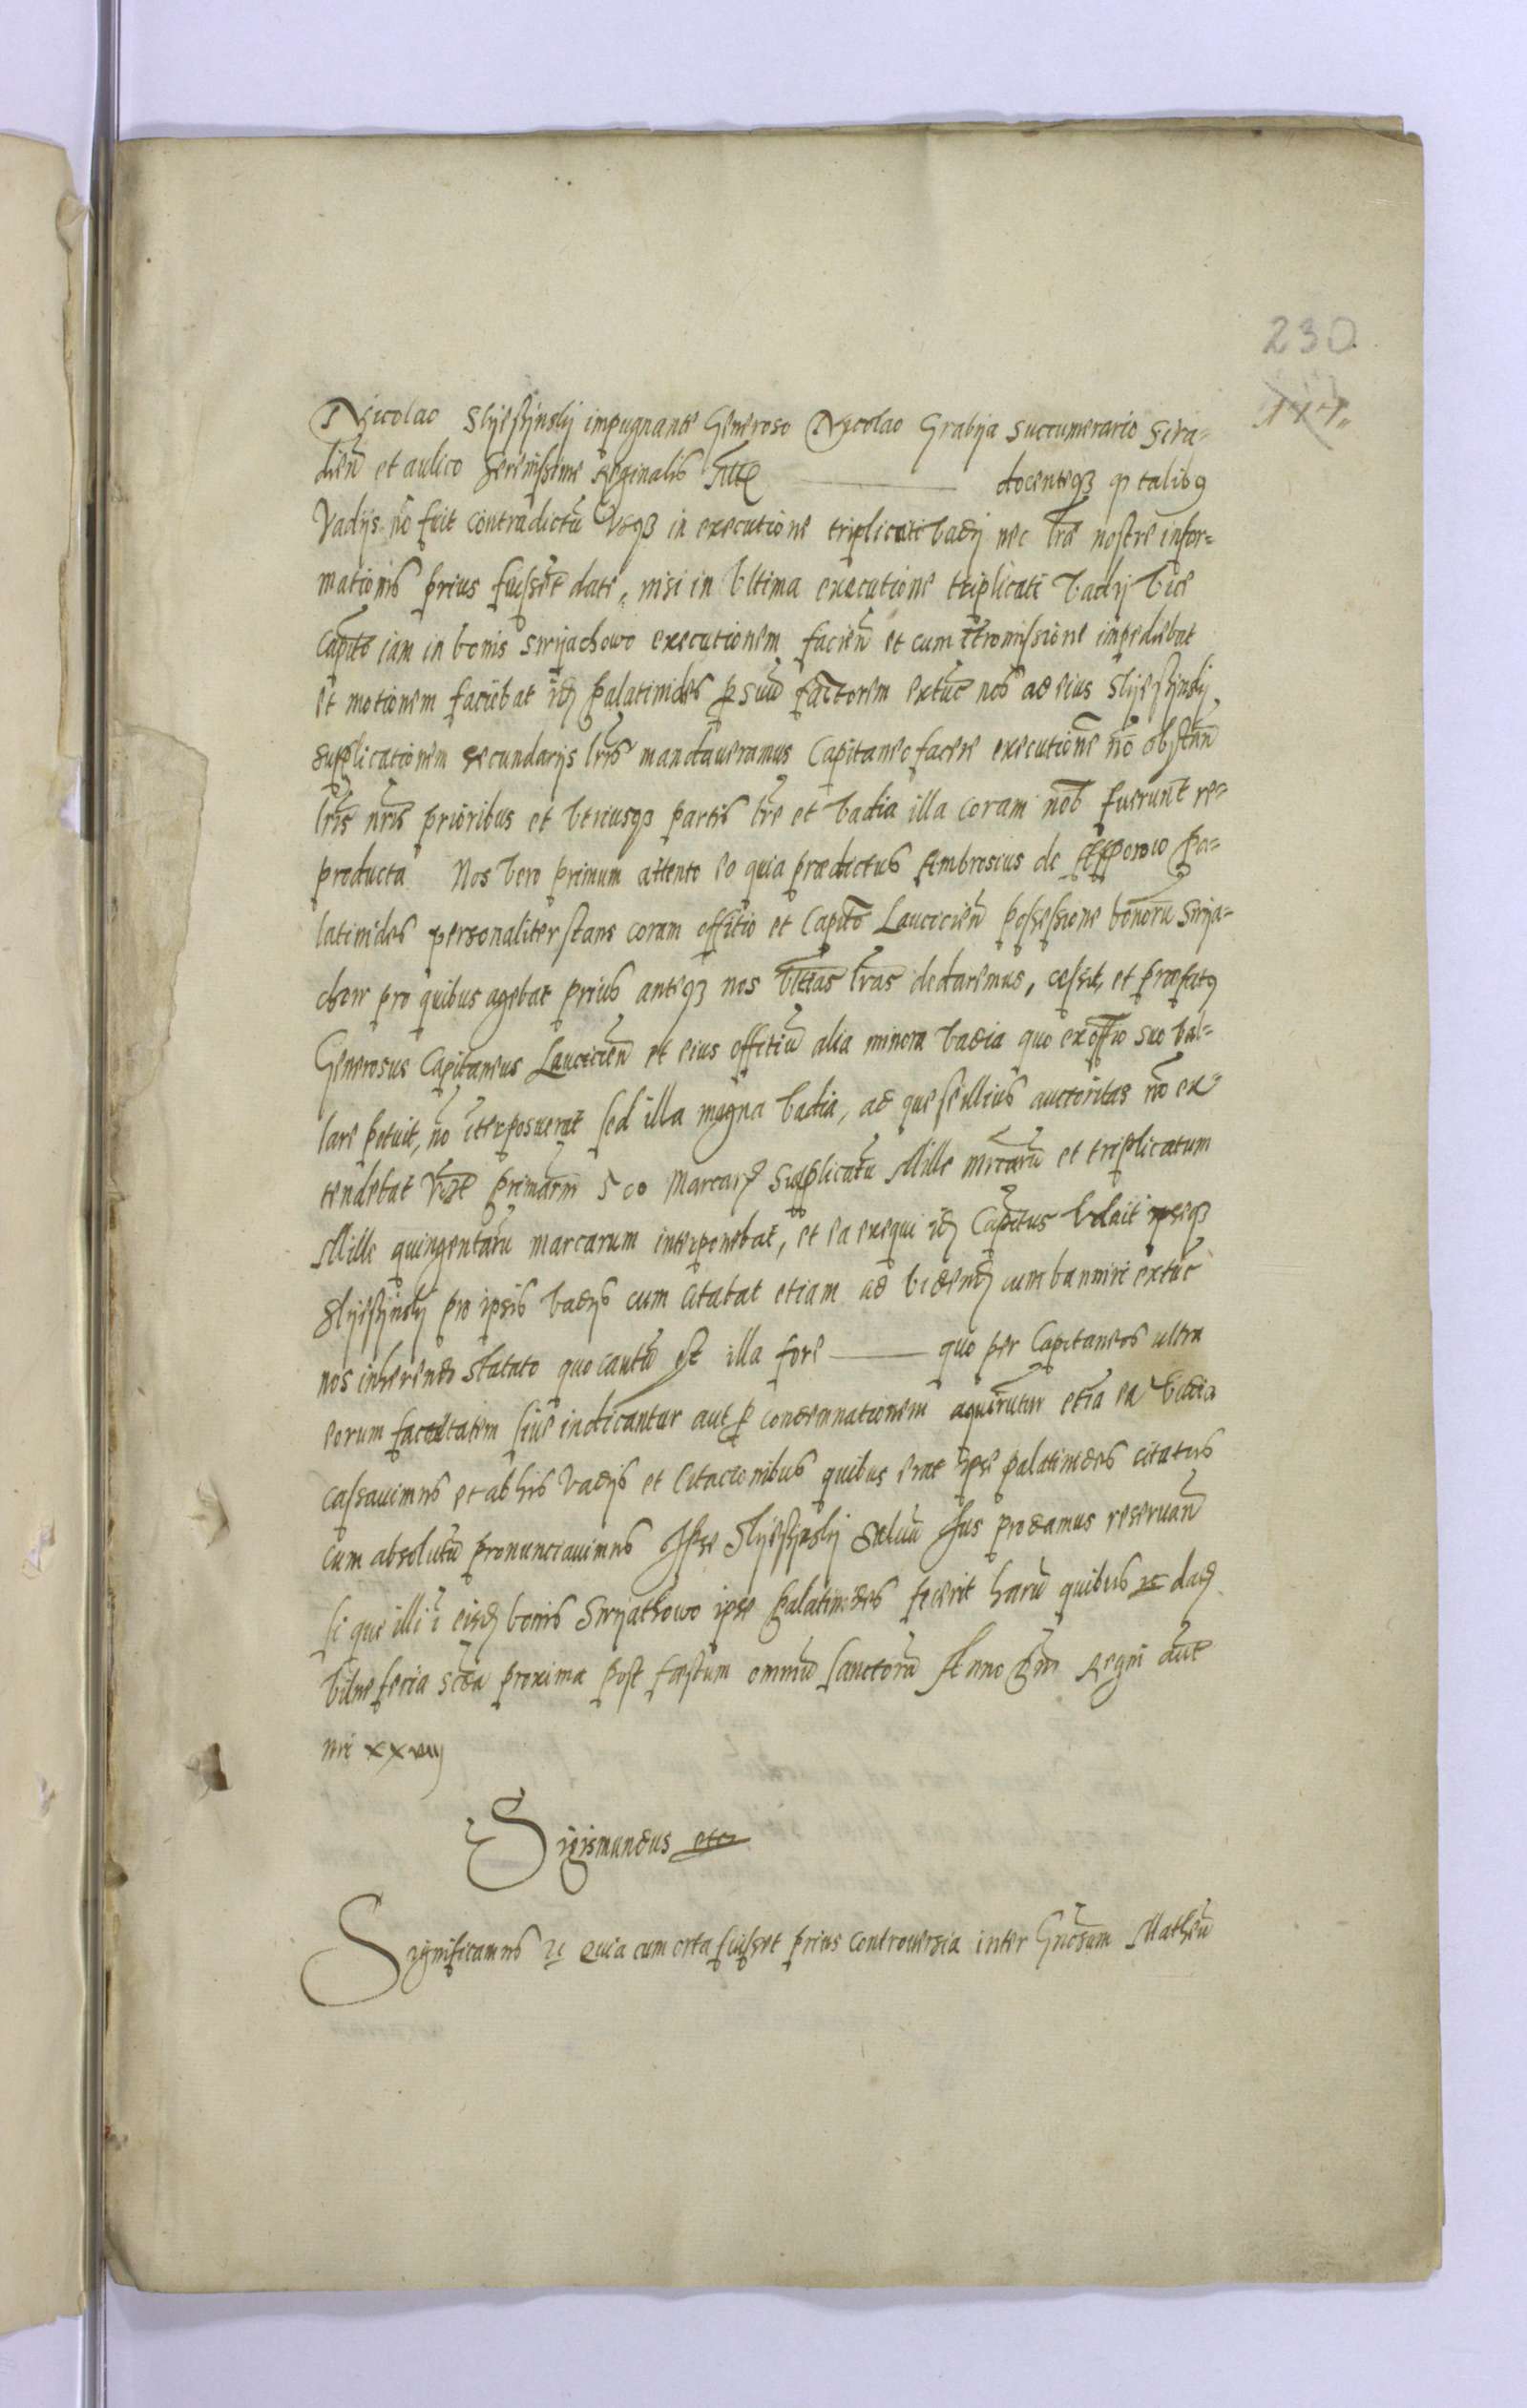 230
Nicolao Slyeszynsky impugnante Generoso Nycolao Grabya succumerario Sira-
dien et aulico Serenissime Reginalis Mtte ——— docenteqз ꝙ talibꝯ
Vadys no fuit contradictū Vsqз in executione triplicati vadij nec lrē nostre infor=
mationis prius fuissēt date, nisi in Vltima executione triplicati vadij vice
Capito iam in bonis Swyachowo executionem facien et cum itromissione impediebat
et motionem faciebat idē palatinides ꝑ suū factorem extūc nos ad eius Slyeszynsky
supplicationem secundarijs lris mandaveramus Capitaneo facere executionē nō obstan
lris nris prioribus et vtriusqз partis lre et vadia illa coram nob fuerunt re=
producta Nos vero primum attento eo quia prædictus Ambrosius de pa=
latinides personaliter stans coram offitio et Capito Lancicien possessione bonorū Swya=
chow pro quibus agebat prius anteqз nos vltias lras dedaremus, cessit, et præfatꝯ
Generosus Capitaneus Lancicien et eius offitiū alia minora vadia quo ex offio suo val=
lare potuit, nō iterposuerat sed illa magna vadia, ad que se illius auctoritas nō ex=
tendebat vizt primarm 500 Marcarꝝ Dupplicatū Mille mrcarū et triplicatum
Mille quingentarū marcarum interponebat, et ea exequi idē Capitus voluit ipseqз
Slyeszynsky pro ipsis vadys eum citabat etiam ad videndū eum bannire extūc
nos inherendo statuto quo cautū est illa fore ——— quo per Capitaneos ultra
eorum facultatem sive indicantur aut ꝑ condemnationem aquirūtur etiā ea vadia
cassavimus et ab his vadijs et citacionibus quibus erat ipse palatinides citatus
eum absolutū pronunciavimus Ipse Slyeszynsky saluū Jus prodamus reservan
si que illi ī eisdē bonis Swyathowo ipse palatinides fecerit harū quibus rc datꝝ
Vilne feria scda proxima post fæstum omniū sanctorū Anno Dni Regni aūte
nri xxviij
Sigismundus etcz
Significamus rc Quia cum orta fuisset prius controversia inter Gnosum Matheū